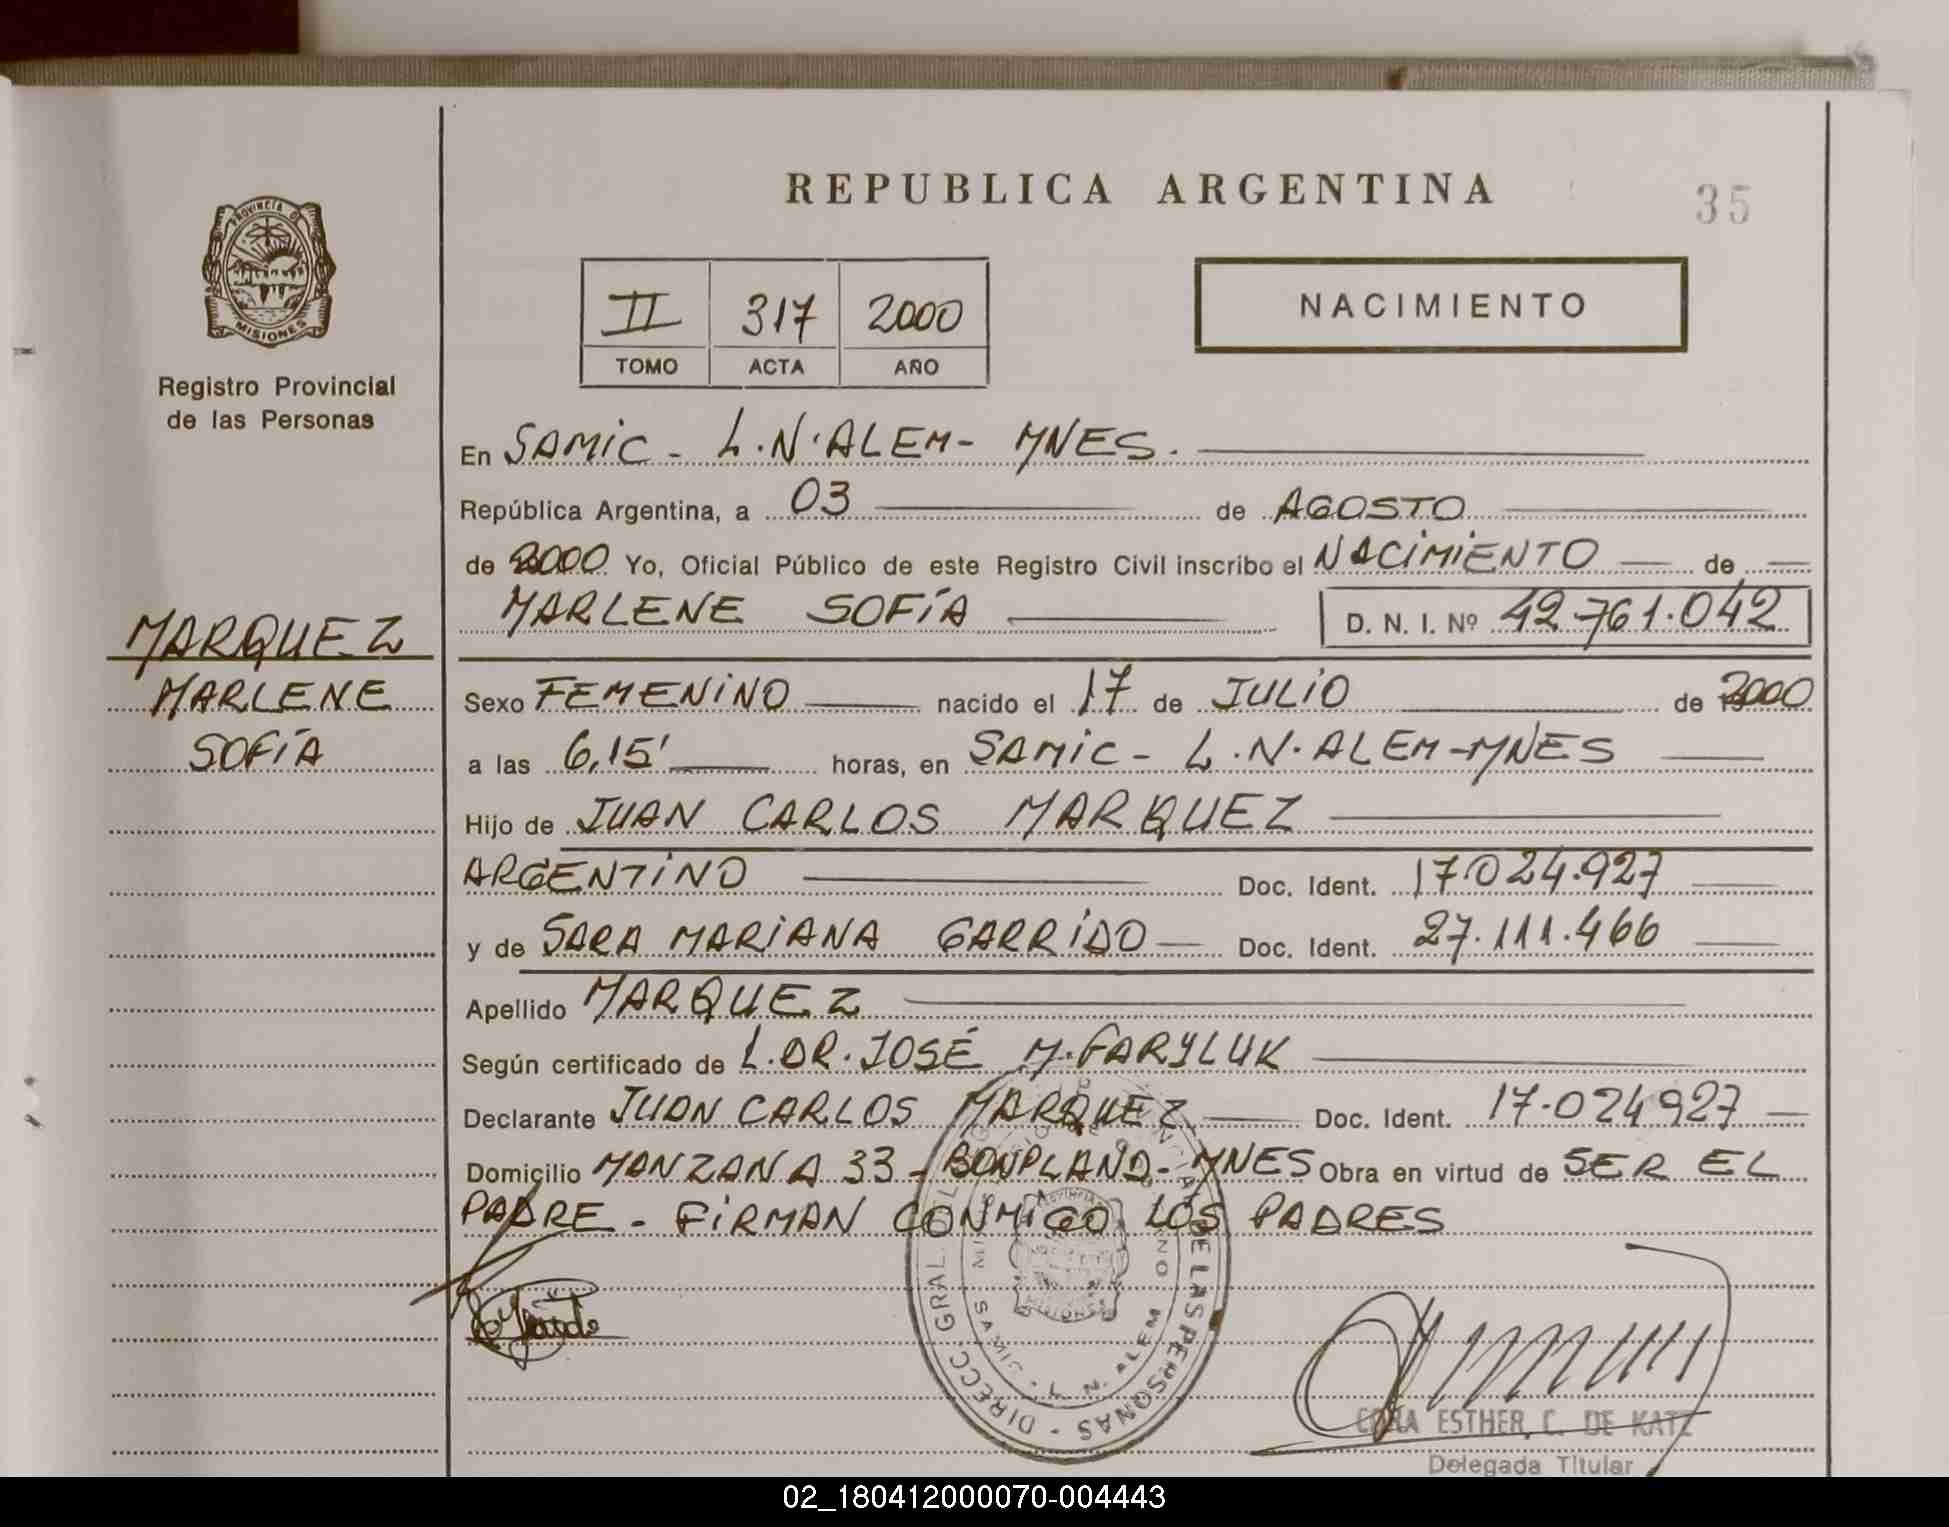 REPUBLICA ARGENTINA
35
PROVINCIA DE
MISIONES
Registro Provincial
de las Personas
II 317 2000
TOMO ACTA AÑO
NACIMIENTO
En SAMIC - L.N.ALEM- MNES.
República Argentina, a 03 de AGOSTO
de 2000 Yo, Oficial Público de este Registro Civil inscribo el NACIMIENTO de
MARLENE SOFÍA D. N. I. Nº 42.761.042
MARQUEZ
MARLENE
SOFÍA
Sexo FEMENINO nacido el 17 de JULIO de 2000
a las 6,15' horas, en SAMIC - L.N.ALEM-MNES
Hijo de JUAN CARLOS MARQUEZ
ARGENTINO Doc. Ident. 17.024.927
y de SARA MARIANA GARRIDO Doc. Ident. 27.111.466
Apellido MARQUEZ
Según certificado de L.DR.JOSÉ M.GARYLUK
Declarante JUAN CARLOS MARQUEZ Doc. Ident. 17.024927
Domicilio MANZANA 33 - BONPLAND - MNES Obra en virtud de SER EL
PADRE - FIRMAN CONMIGO LOS PADRES
DIRECC. GRAL. DE LAS PERSONAS
L. N. ALEM
CORA ESTHER C. DE KATZ
Delegada Titular
02_180412000070-004443